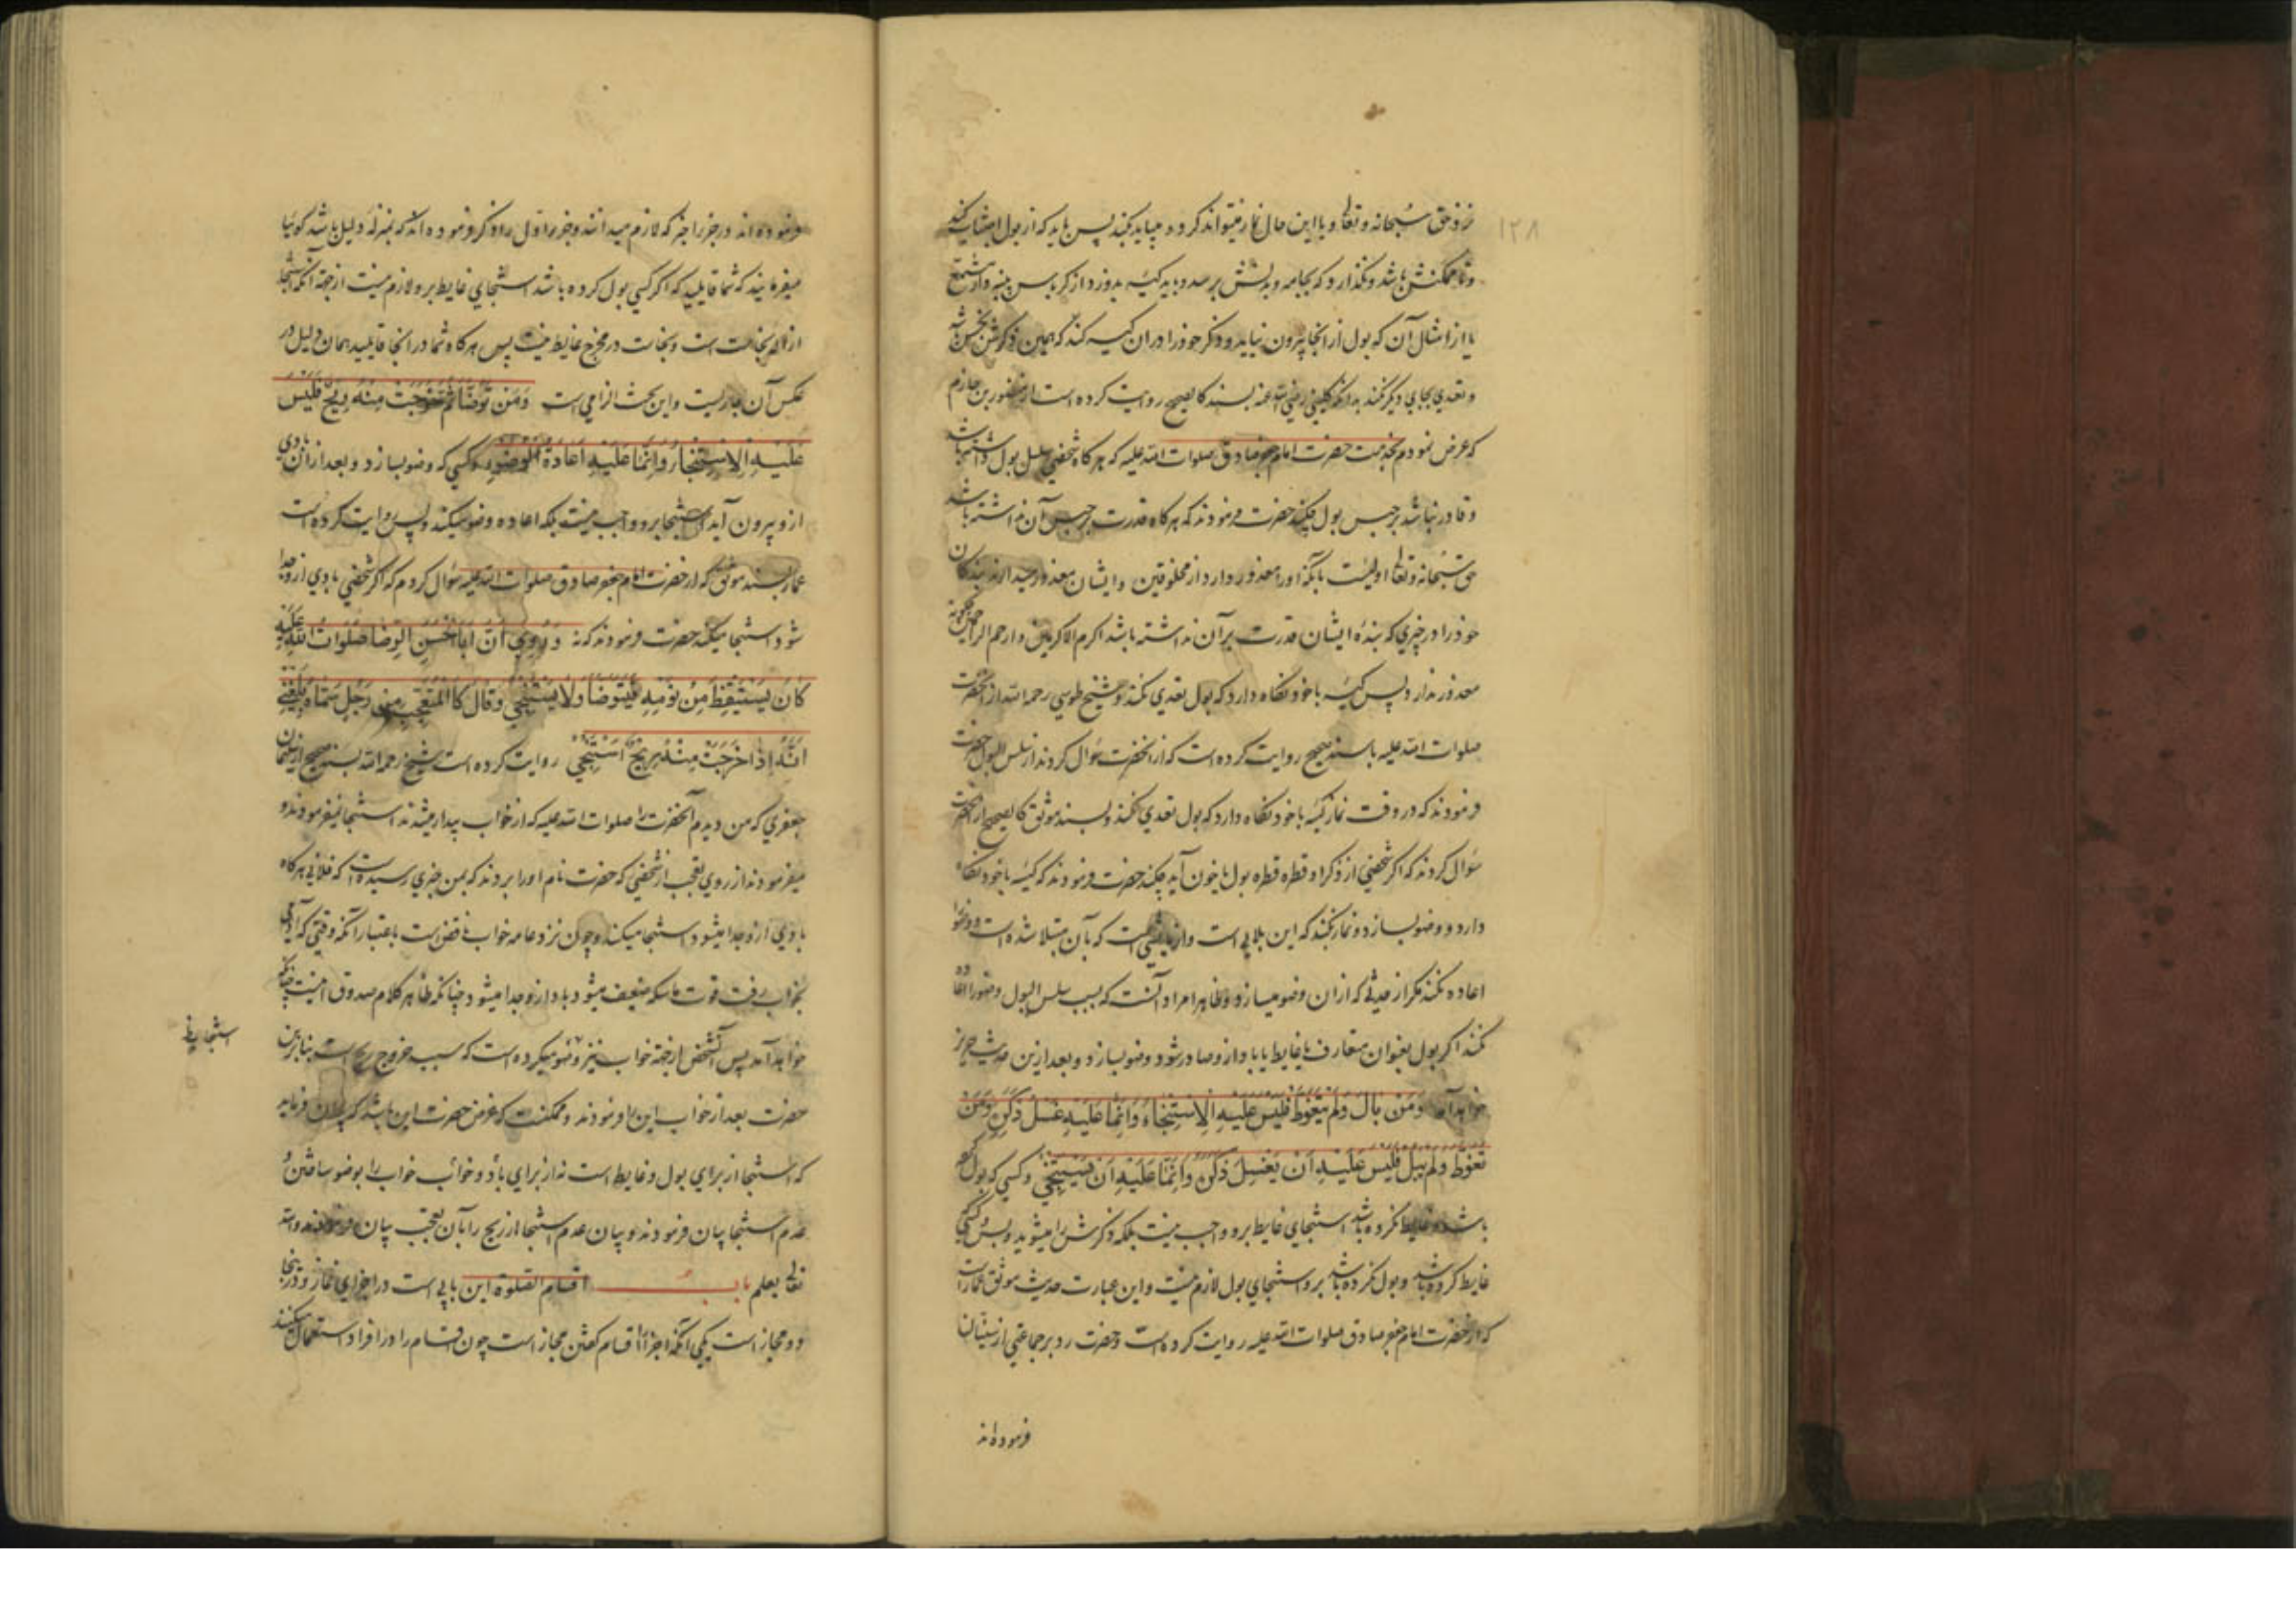 ۱۲۸
نزد حق سبحانه و تعالی و با این حال نماز میتواند کرد و میباید بکند پس باید که از بول اجتناب کند
و تا ممکنش باشد و نگذارد که بجامه و بدنش برسد و باید کیسه بدوزد از کرباس
یا از امثال آن که بول از آنجا بیرون نیاید و ذکر خود را در آن کیسه کند که همین ذکرش نجس شود
و تعدی بجای دیگر نکند بدانکه کلینی رضی الله عنه بسند کالصحیح روایت کرده است از منصور بن حازم
که عرض نمودم بخدمت حضرت امام جعفر صادق صلوات الله علیه که هر کاه شخصی سلس بول داشته باشد
و قادر نباشد بر حبس بول چکند حضرت فرمودند که هر کاه قدرت بر حبس آن نداشته باشد
حق سبحانه و تعالی اولیست بآنکه او را معذور دارد از مخلوقین و ایشان معذور میدارند بندکان
خود را در چیزی که بنده ایشان قدرت بر آن نداشته باشد اکرم الاکرمین و ارحم الراحمین چکونه
معذور ندارد پس کیسه با خود نکاه دارد که بول تعدی نکند و شیخ طوسی رحمه الله از آنحضرت
صلوات الله علیه باسند صحیح روایت کرده است که از آنحضرت سؤال کردند از سلس البول حضرت
فرمودند که در وقت نماز کیسه با خود نکاه دارد که بول تعدی نکند و بسند موثق کالصحیح از آنحضرت
سؤال کردند که اکر شخصی از ذکر او قطره قطره بول یا خون آید چکند حضرت فرمودند که کیسه با خود نکاه
دارد و وضو بسازد و نماز بکند که این بلایی است که بآن مبتلا شده است و وضو را
اعاده نکند مکر از حدثی که از آن وضو میسازد و ظاهرا مراد آنست که بسبب سلس البول وضو را اعاده
نکند اکر بول بعنوان متعارف یا غایط یا باد از و صادر شود وضو بسازد و بعد ازین حدیث حریز
خواهد آمد وَمَنْ بَالَ وَلَمْ يَتَغَوَّطْ فَلَيْسَ عَلَيْهِ الِاسْتِنْجَاءُ وَاِنَّمَا عَلَيْهِ غَسْلُ ذَكَرِهِ وَمَنْ
تَغَوَّطَ وَلَمْ يَبُلْ فَلَيْسَ عَلَيْهِ اَنْ يَغْسِلَ ذَكَرَهُ وَاِنَّمَا عَلَيْهِ اَنْ يَسْتَنْجِيَ و کسی که بول کرده
باشد و غایط نکرده باشد استنجای غایط بر و واجب نیست بلکه ذکرش را میشوید و بس و کسی که
غایط کرده باشد و بول نکرده باشد بر و استنجای بول لازم نیست و این عبارت حدیث موثق عمار است
که از حضرت امام جعفر صادق صلوات الله علیه روایت کرده است و حضرت رد بر جماعتی از سنیان
فرموده اند
فرموده اند در جزو اخیر که لازم میدانند و جزو اول را ذکر فرموده اند که بمنزله دلیل باشد کوئیا
میفرمایند که شما قایلید که اکر کسی بول کرده باشد استنجای غایط بر و لازم نیست از جهة آنکه استنجا
ازاله نجاست است و نجاست در مخرج غایط نیست پس هر کاه شما در آنجا قایلید همان دلیل در
عکس آن جاریست و این بحث الزامی است وَمَنْ تَوَضَّأَ ثُمَّ خَرَجَتْ مِنْهُ رِيحٌ فَلَيْسَ
عَلَيْهِ الِاسْتِنْجَاءُ وَاِنَّمَا عَلَيْهِ اِعَادَةُ الْوُضُوءِ و کسی که وضو بسازد و بعد از آن بادی
از و بیرون آید استنجا بر و واجب نیست بلکه اعاده وضو میکند و بس روایت کرده است
عمار بسند موثق که از حضرت امام جعفر صادق صلوات الله علیه سؤال کردم که اکر شخصی بادی از و جدا
شود استنجا میکند حضرت فرمودند که نه وَرُوِيَ اَنَّ اَبَا الْحَسَنِ الرِّضَا صَلَوَاتُ اللهِ عَلَيْهِ
كَانَ يَسْتَيْقِظُ مِنْ نَوْمِهِ فَيَتَوَضَّأُ وَلَا يَسْتَنْجِي وَقَالَ كَالْمُتَعَجِّبِ مِنْ رَجُلٍ سَمَّاهُ بَلَغَنِي
اَنَّهُ اِذَا خَرَجَتْ مِنْهُ رِيحٌ اسْتَنْجَى روایت کرده است شیخ رحمه الله بسند صحیح از سلیمان
جعفری که من دیدم آنحضرت را صلوات الله علیه که از خواب بیدار میشدند استنجا نمیفرمودند و
میفرمودند از روی تعجب از شخصی که حضرت نام او را بردند که بمن خبری رسیده است که فلانی هر کاه
بادی از و جدا میشود استنجا میکند و چون نزد عامه خواب ناقض است باعتبار آنکه وقتی که آدمی
بخواب رفت قوت ماسکه ضعیف میشود و باد از و جدا میشود و چنانکه ظاهر کلام صدوق اینست چنانکه
خواهد آمد پس آنشخص از جهة خواب نیز وضو میکرده است که سبب خروج ریح است بنابرین
حضرت بعد از خواب این را فرمودند و ممکنست که غرض حضرت این باشد که بیان فرماید
که استنجا از برای بول و غایط است نه از برای باد و خواب خواب را بوضو ساختن و
عدم استنجا بیان فرمودند و بیان عدم استنجا از ریح را بآن تعجب بیان فرمودند و الله
تعالی یعلم باب اقسام الصلوة این بابی است در اجزای نماز و در اینجا
دو مجاز است یکی آنکه اجزا را اقسام کفتن مجاز است چون اقسام را در افراد استعمال میکنند